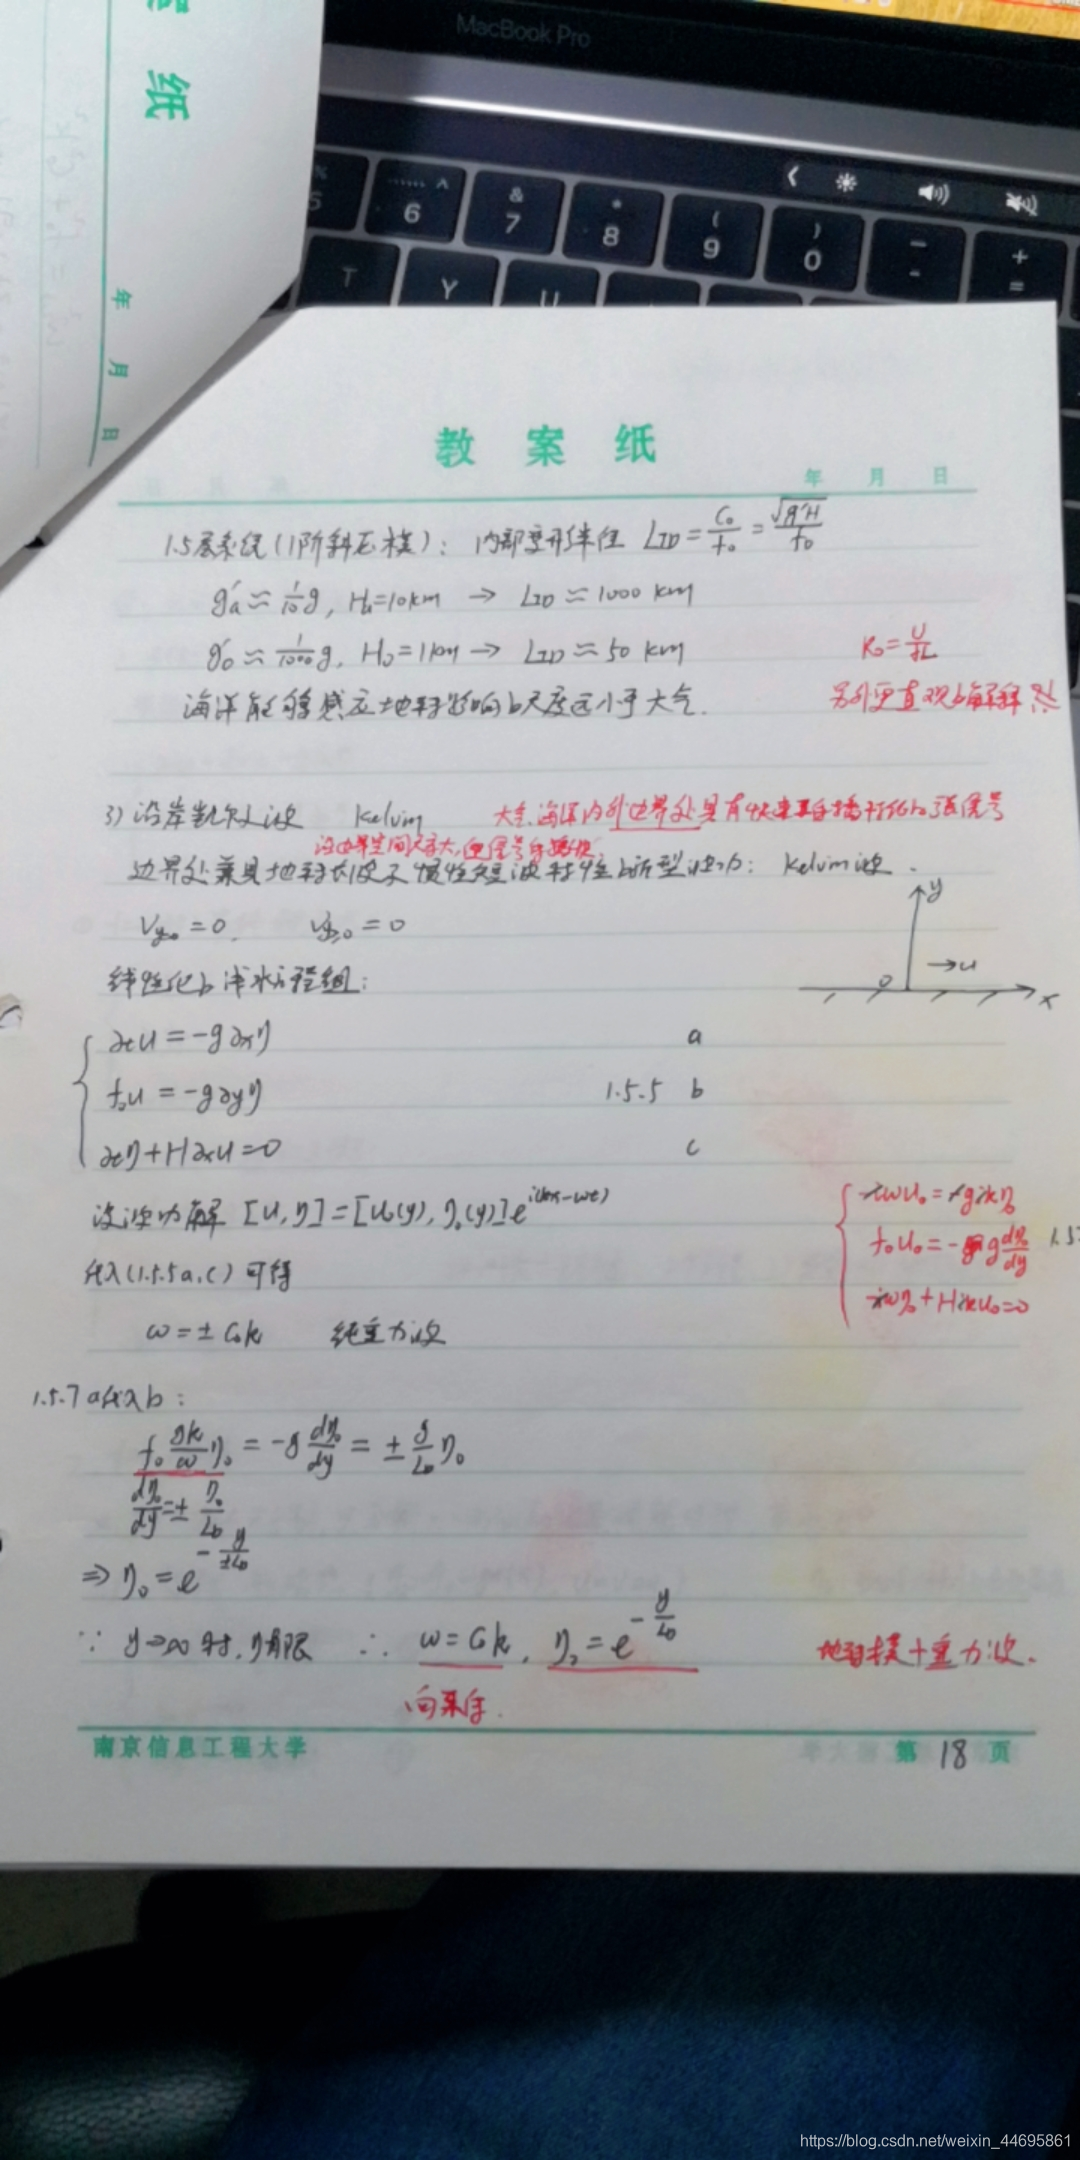 MacBook Pro
纸
年 月 日
& * ( ) - +
6 7 8 9 0 - =
T Y U
教 案 纸
年 月 日
1.5层系统(1阶斜压模): 内部变形半径 L_ID = C₀/f₀ = √(g'H)/f₀
g'a ≈ 1/10 g, Ha=10km → L_ID ≈ 1000 km
g'o ≈ 1/1000 g, Ho=1km → L_ID ≈ 50 km
R₀ = U/fL
海洋能够感应地转影响的尺度远小于大气.
另外更直观的解释
3) 沿岸凯尔文波 Kelvin
大气海洋内外边界处具有快速
沿边界空间尺度大,
边界处兼具地转长波及惯性短波特性的新型波动: Kelvin波.
V_{y=0} = 0,
线性化的浅水方程组:
y
→u
0
x
∂tu = -g∂xη a
f₀u = -g∂yη 1.5.5 b
∂tη+H∂xu=0 c
波动解 [u,η]=[u₀(y),η₀(y)]e^{i(kx-ωt)}
-iωu₀ = -gikη₀
f₀u₀ = -g dη₀/dy
-iωη₀+Hiku₀=0
代入(1.5.5a,c)可得
ω=±C₀k 纯重力波
1.5.7 a代入b:
f₀ gk/ω η₀ = -g dη₀/dy = ± g/L_D η₀
dη₀/dy = ± η₀/L_D
⇒ η₀ = e^{-y/±L_D}
∵ y→∞时,η有限 ∴ ω=C₀k, η₀=e^{-y/L_D}
地转模+重力波.
向东传.
南京信息工程大学 第 18 页
https://blog.csdn.net/weixin_44695861